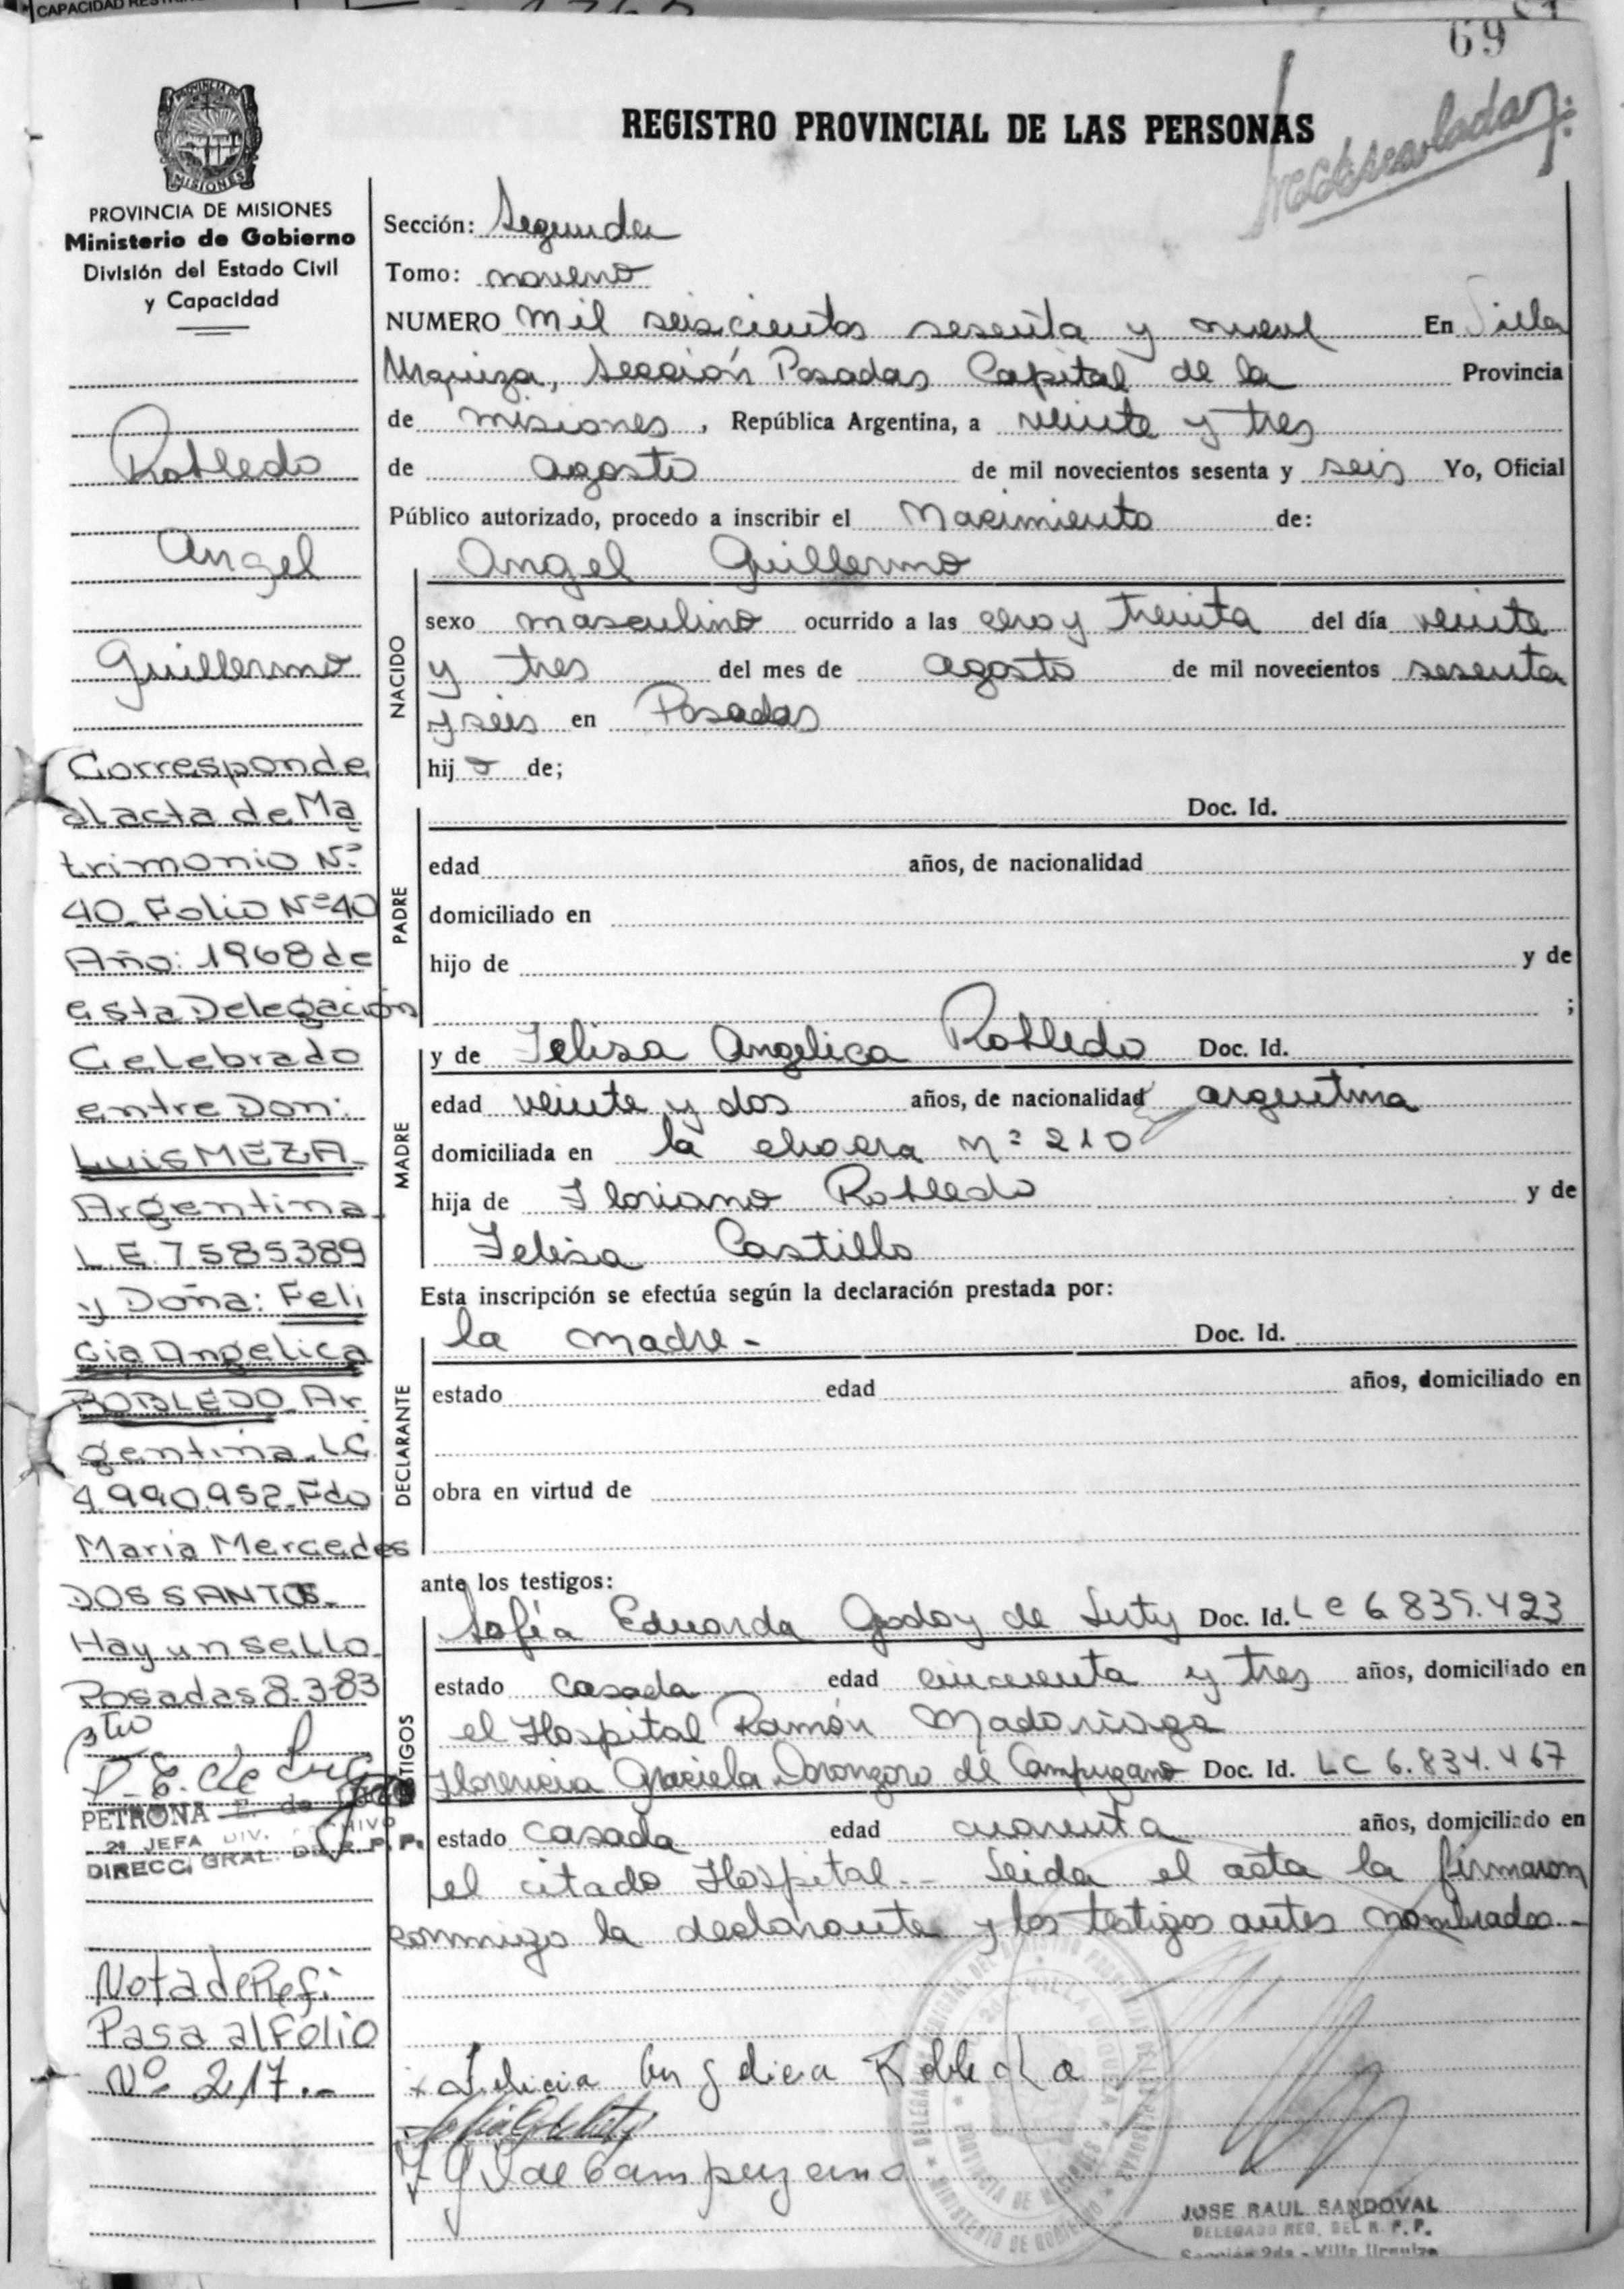 CAPACIDAD
69
REGISTRO PROVINCIAL DE LAS PERSONAS
PROVINCIA DE
MISIONES
PROVINCIA DE MISIONES
Ministerio de Gobierno
División del Estado Civil
y Capacidad
Robledo
Angel
Guillermo
Corresponde
al acta de Ma
trimonio Nº
40 Folio Nº 40
Año: 1968 de
esta Delegación
Celebrado
entre Don:
LUIS MEZA
Argentina
L.E. 7585389
y Doña: Feli
cia Angelica
ROBLEDO Ar
gentina LC
4.990.952 Fdo
Maria Mercedes
DOS SANTOS
Hay un sello
Posadas 8-3-83
P. E. de
PETRONA E. de
2ª JEFA DIV. ARCHIVO
DIRECC. GRAL. DE R. P. P.
Nota de Ref:
Pasa al Folio
Nº 217.-
Sección: Segunda
Tomo: noveno
NUMERO mil seiscientos sesenta y nueve En Villa
Urquiza, Sección Posadas Capital de la Provincia
de misiones, República Argentina, a veinte y tres
de agosto de mil novecientos sesenta y seis Yo, Oficial
Público autorizado, procedo a inscribir el Nacimiento de:
NACIDO
Angel Guillermo
sexo masculino ocurrido a las cero y treinta del día veinte
y tres del mes de agosto de mil novecientos sesenta
y seis en Posadas
hijo de;
PADRE
Doc. Id.
edad años, de nacionalidad
domiciliado en
hijo de y de
;
MADRE
y de Felisa Angelica Robledo Doc. Id.
edad veinte y dos años, de nacionalidad argentina
domiciliada en la chacra nº 210
hija de Floriano Robledo y de
Felisa Castillo
Esta inscripción se efectúa según la declaración prestada por:
DECLARANTE
la madre - Doc. Id.
estado edad años, domiciliado en
obra en virtud de
ante los testigos:
TIGOS
Sofía Eduarda Godoy de Doc. Id. LC 6.835.423
estado casada edad cincuenta y tres años, domiciliado en
el Hospital Ramón Madariaga
Florencia Graciela de Campuzano Doc. Id. LC 6.834.467
estado casada edad cuarenta años, domiciliado en
el citado Hospital.- Leida el acta la firmaron
conmigo la declarante y los testigos antes nombrados.-
Felicia Angelica Robledo
de Campuzano
JOSE RAUL SANDOVAL
DELEGADO REG. DEL R. P. P.
Sección 2da - Villa Urquiza